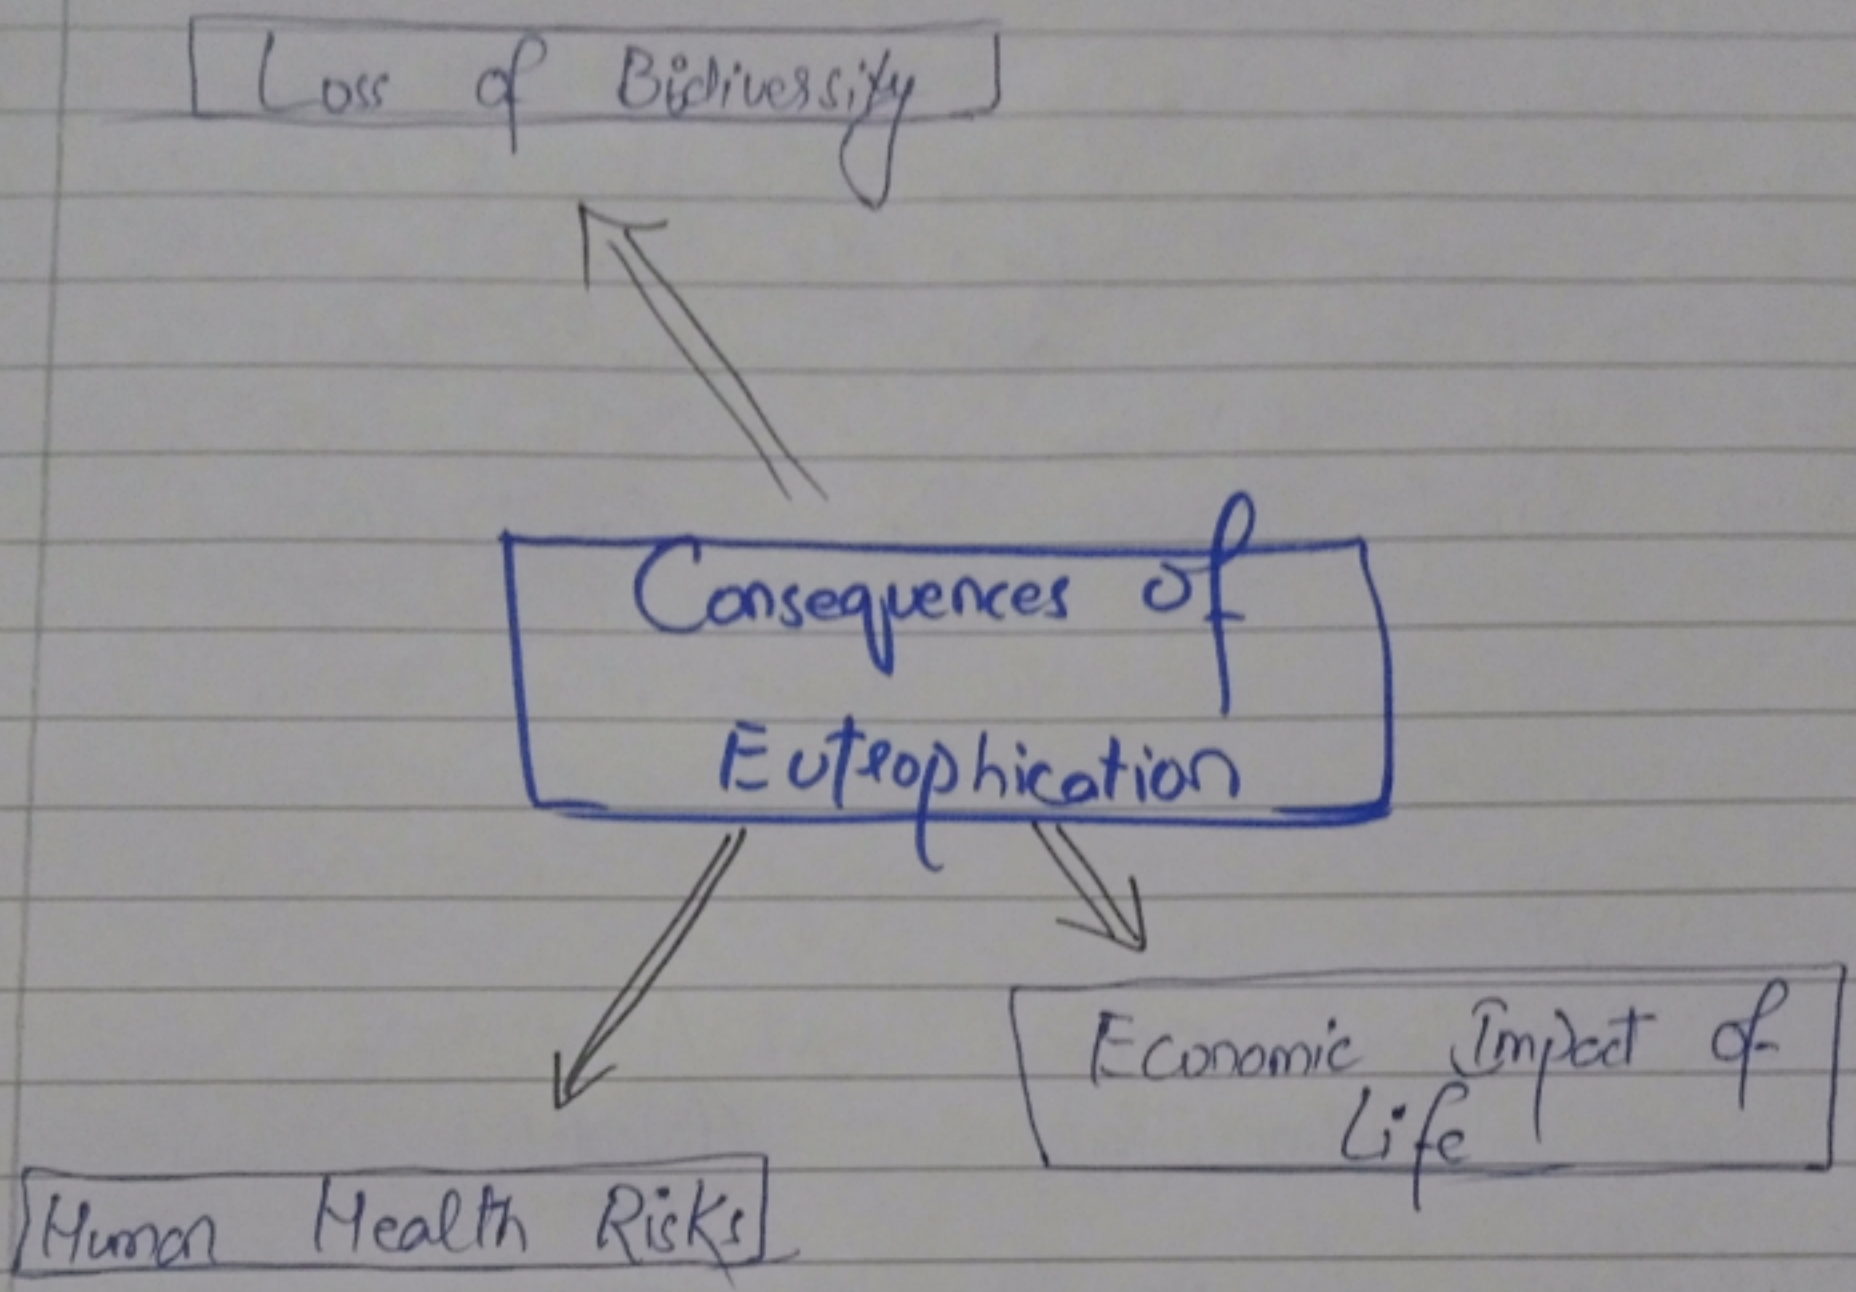 Loss of Bidiversity
Consequences of
Eutrophication
Economic Impact of
Life
Human Health Risks